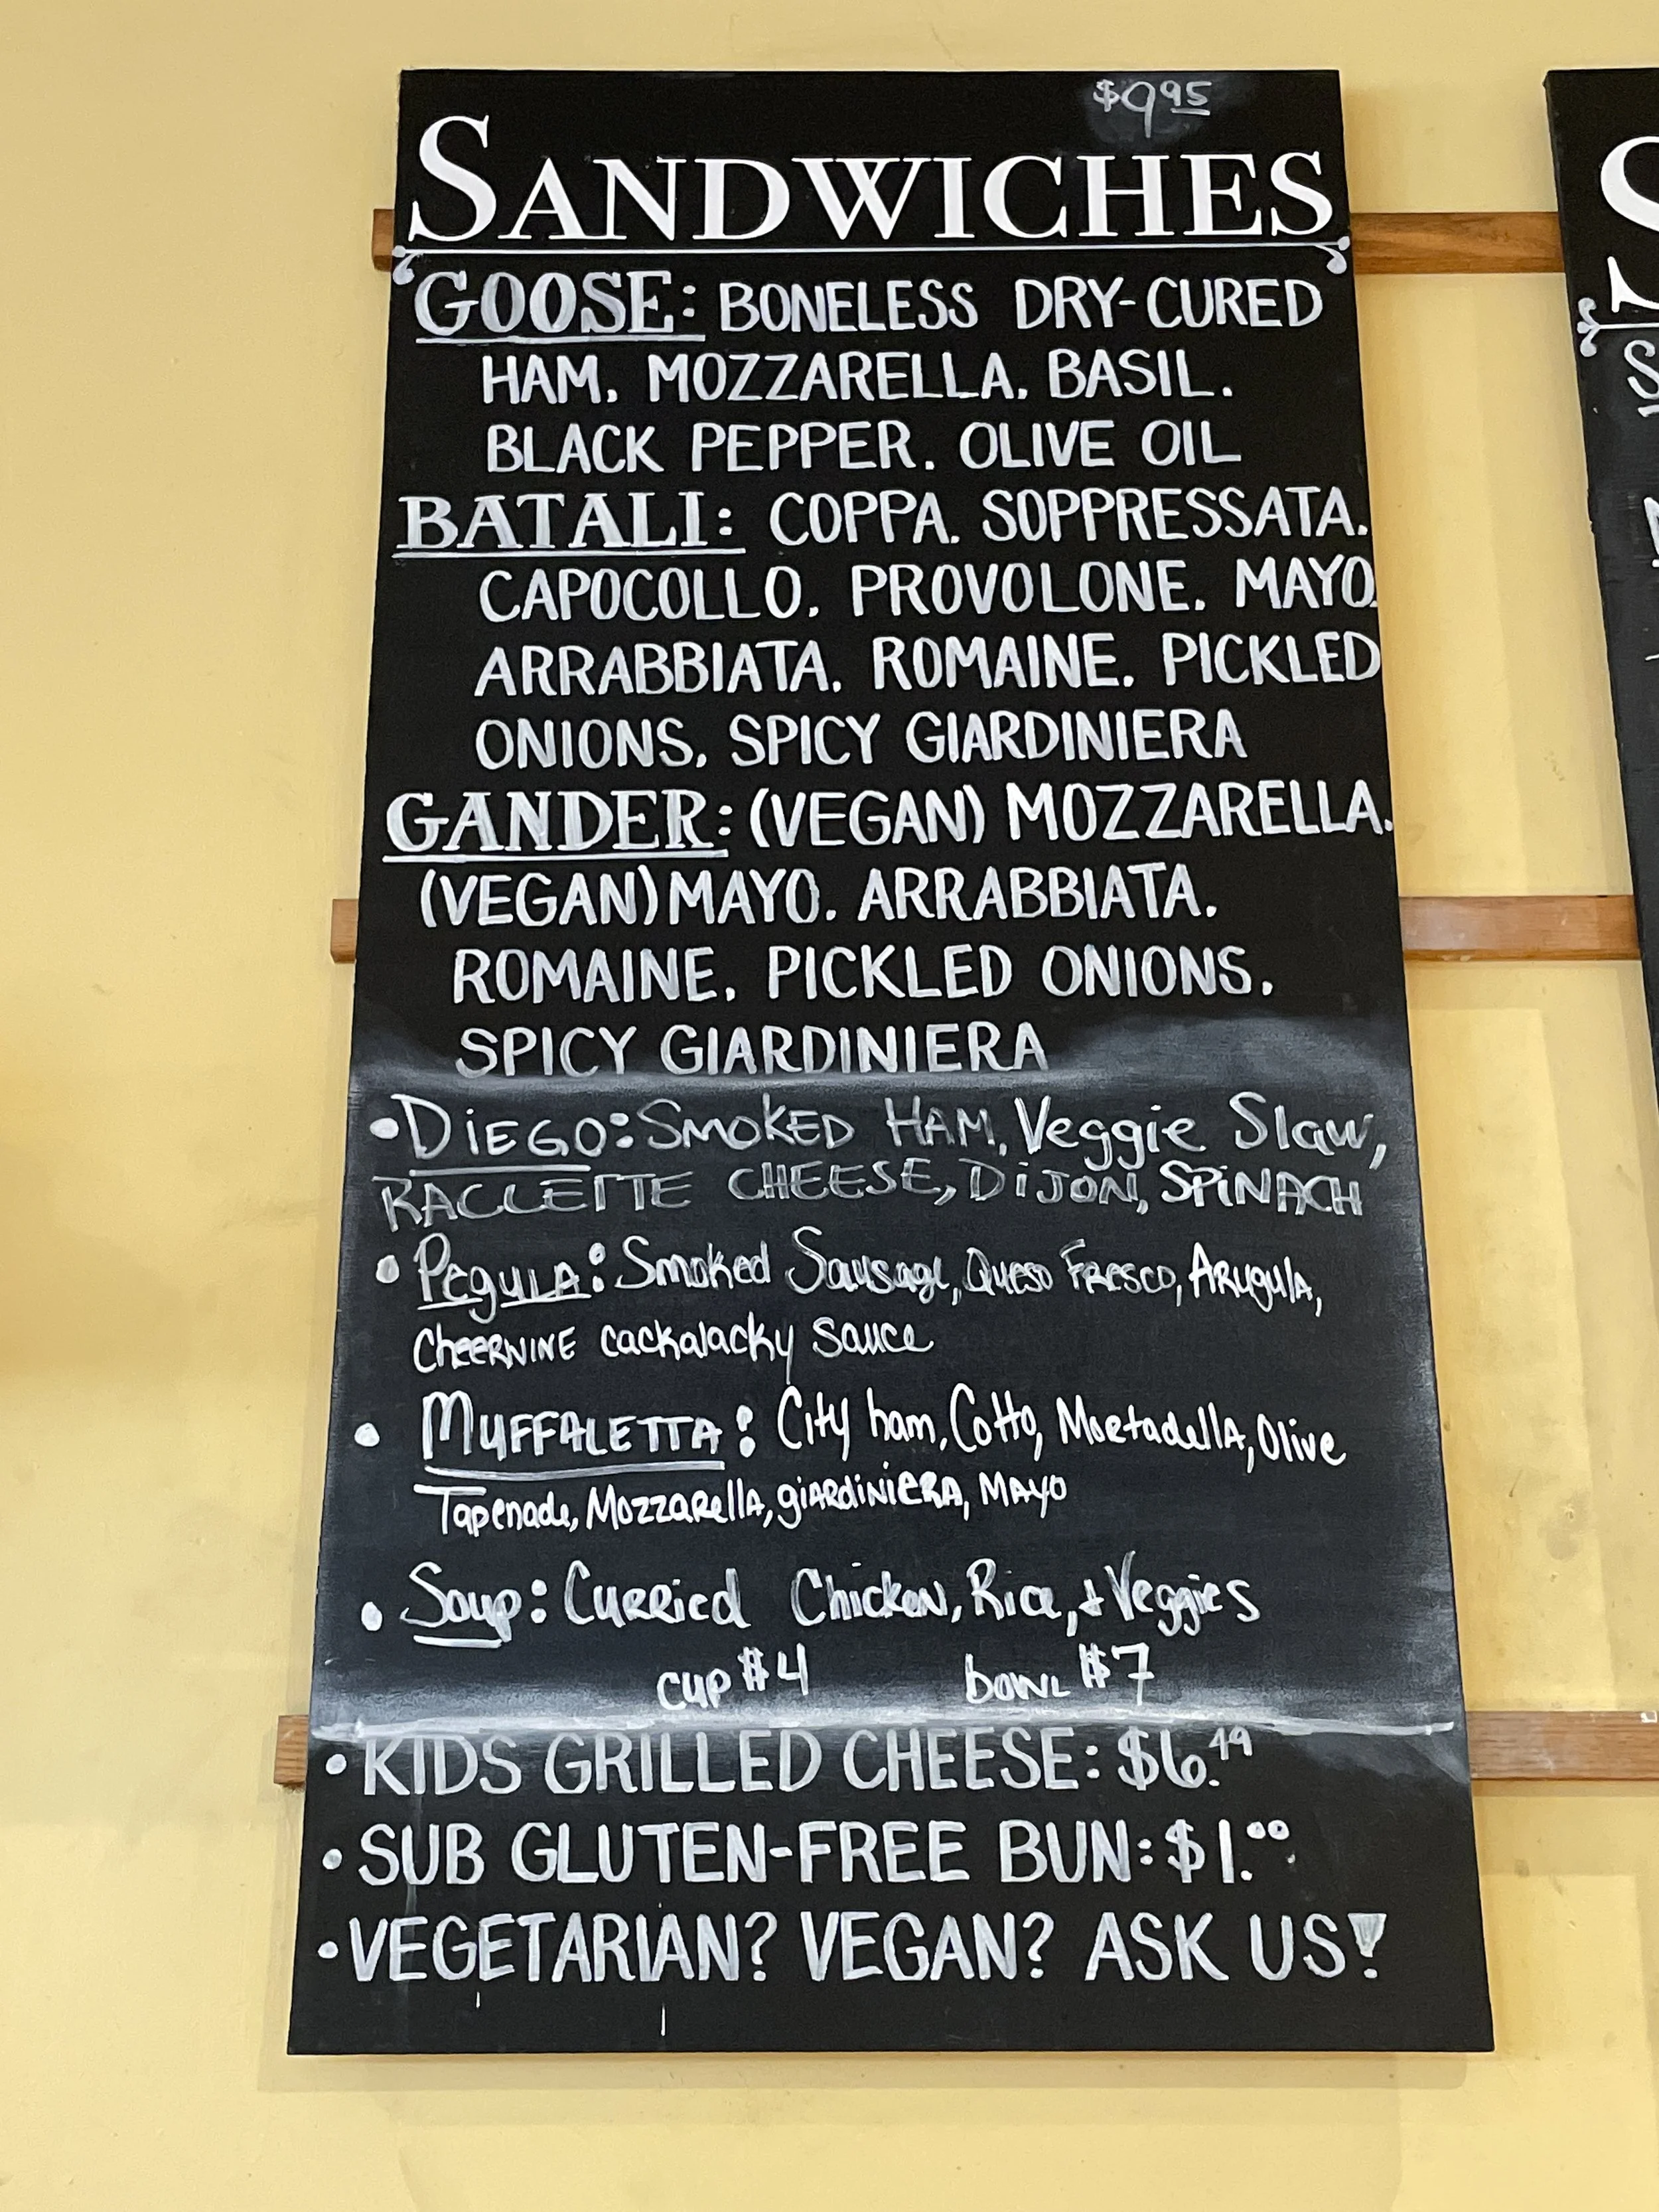 $9.95
SANDWICHES
GOOSE: BONELESS DRY-CURED
HAM. MOZZARELLA. BASIL.
BLACK PEPPER. OLIVE OIL
BATALI: COPPA. SOPPRESSATA.
CAPOCOLLO. PROVOLONE. MAYO.
ARRABBIATA. ROMAINE. PICKLED
ONIONS. SPICY GIARDINIERA
GANDER: (VEGAN) MOZZARELLA.
(VEGAN) MAYO. ARRABBIATA.
ROMAINE. PICKLED ONIONS.
SPICY GIARDINIERA
•DiEGO: SMOKED HAM, Veggie Slaw,
RACLETTE CHEESE, DiJON, SPiNACH
• Pegula: Smoked Sausage, Queso Fresco, Arugula,
Cheerwine cackalacky sauce
• MUFFALETTA: City ham, Cotto, Mortadella, Olive
Tapenade, Mozzarella, giardiniera, Mayo
• Soup: Curried Chicken, Rice, + Veggies
cup $4 bowl $7
•KIDS GRILLED CHEESE: $6.49
•SUB GLUTEN-FREE BUN: $1.00
•VEGETARIAN? VEGAN? ASK US!